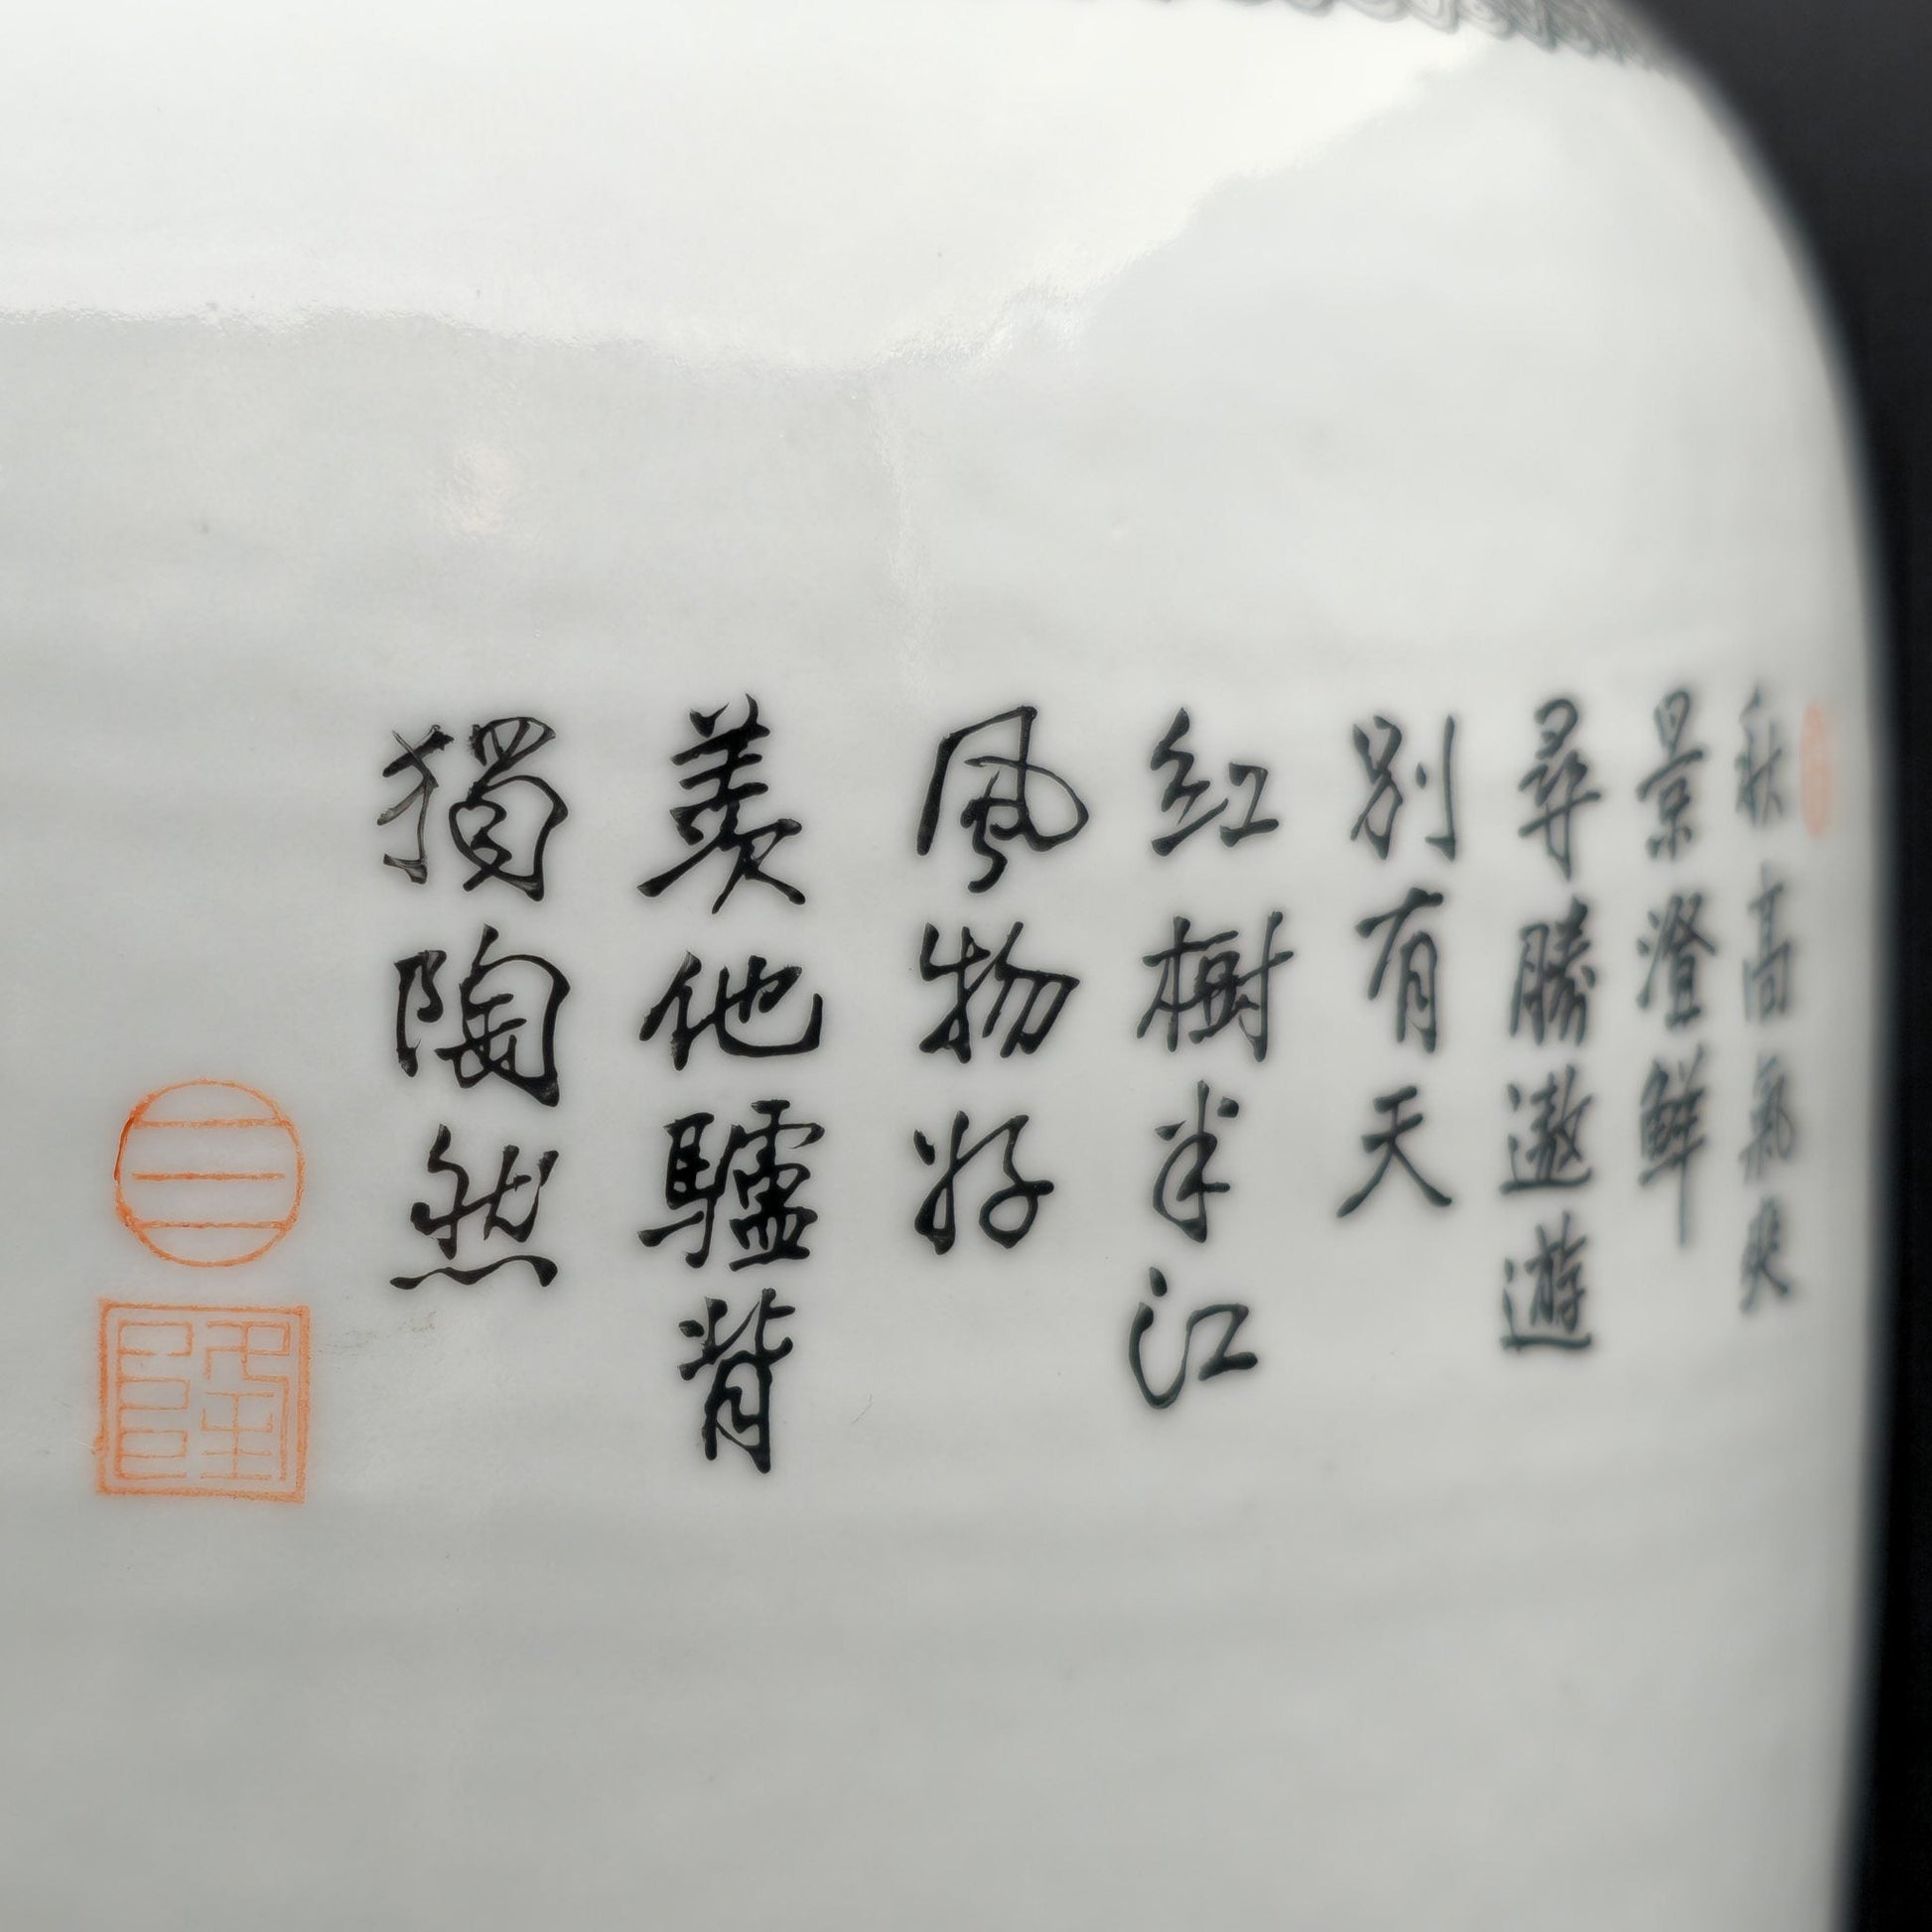 秋高氣爽
景澄鮮
尋勝遨遊
別有天
紅樹半江
風物好
羨他驢背
獨陶然